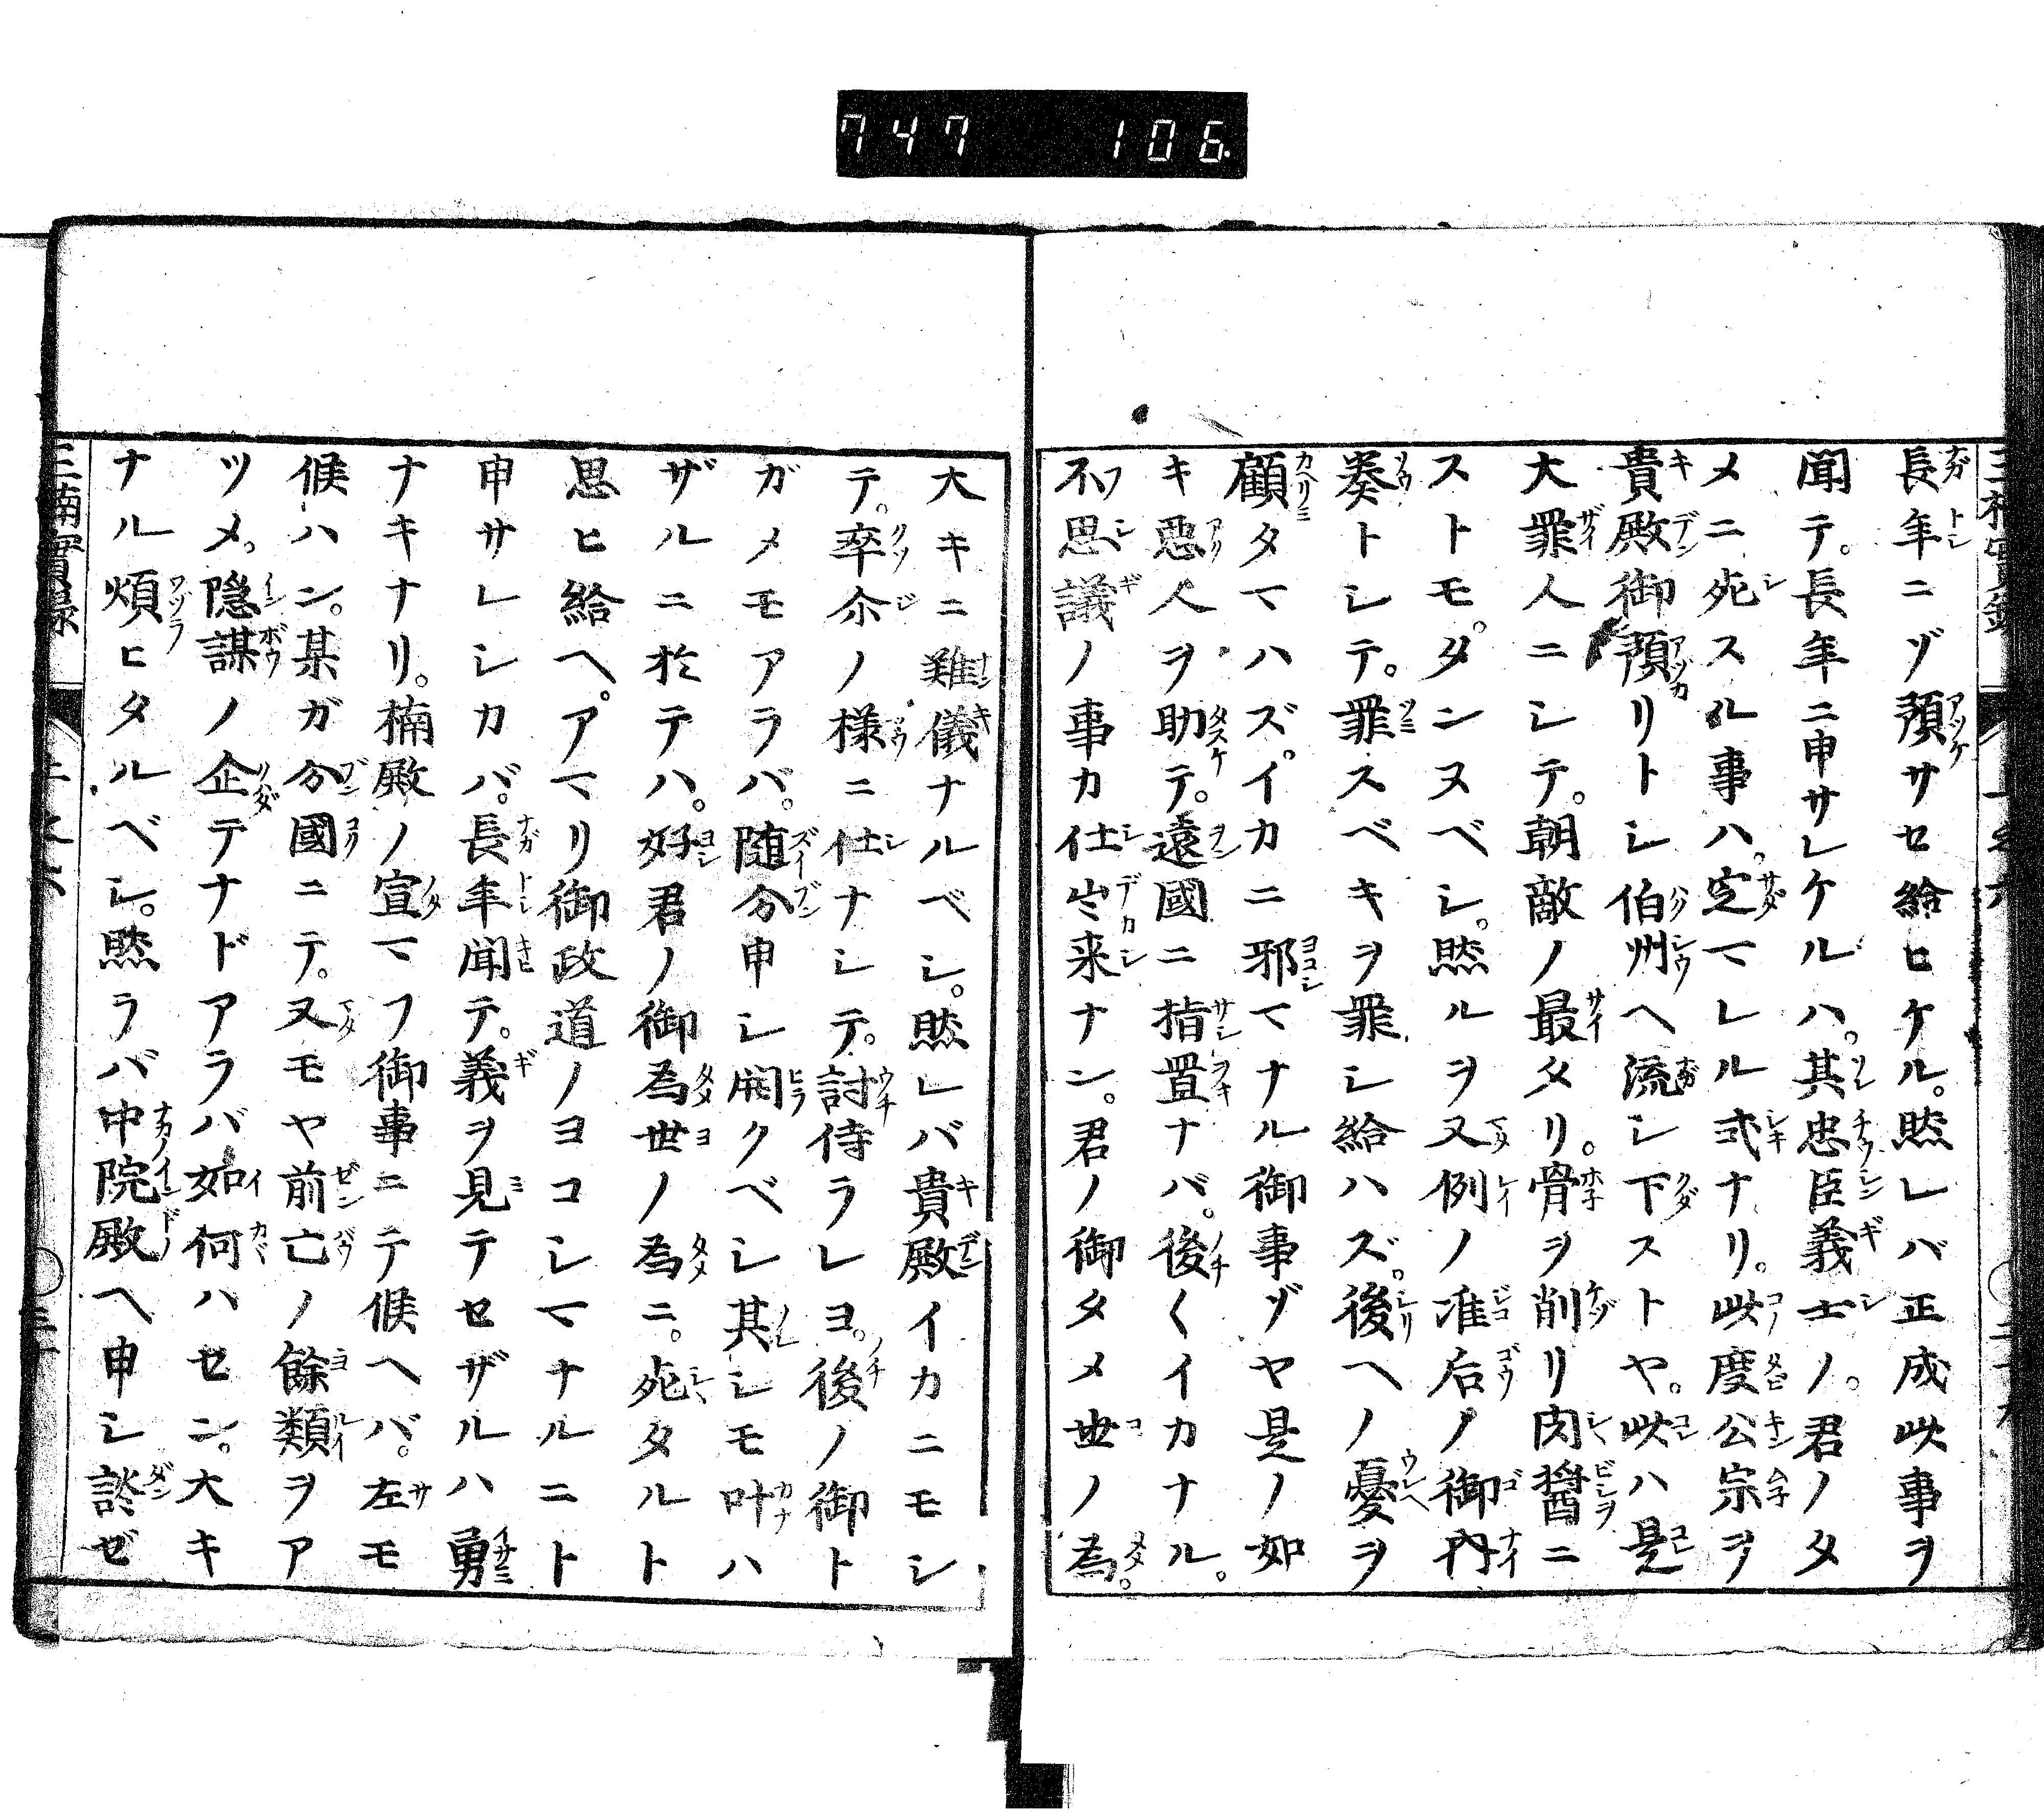 747 106
長年ニゾ預サセ給ヒケル。然レバ正成此事ヲ
聞テ。長年ニ申サレケルハ。其忠臣義士ノ。君ノタ
メニ死スル事ハ。定マレル式ナリ。此度公宗ヲ
貴殿御預リトシ伯州ヘ流シ下ストヤ。此ハ是
大罪人ニシテ。朝敵ノ最タリ。骨ヲ削リ肉醤ニ
ストモ。タンヌベシ。然ルヲ又例ノ准后ノ御内
奏トシテ。罪スベキヲ罪シ給ハズ。後ヘノ憂ヲ
顧タマハズ。イカニ邪マナル御事ゾヤ是ノ如
キ惡人ヲ助テ。遠國ニ指置ナバ。後〱イカナル。
不思議ノ事カ仕出来ナン。君ノ御タメ世ノ為。
大キニ難儀ナルベシ。然レバ貴殿イカニモシ
テ。卒尓ノ様ニ仕ナシテ。討侍ラレヨ。後ノ御ト
ガメモアラバ。随分申シ開クベシ其シモ叶ハ
ザルニ於テハ。好君ノ御為世ノ為ニ。死タルト
思ヒ給ヘ。アマリ御政道ノヨコシマナルニト
申サレシカバ。長年聞テ。義ヲ見テセザルハ勇
ナキナリ。楠殿ノ宣マフ御事ニテ候ヘバ。左モ
候ハン。某ガ分國ニテ。又モヤ前亡ノ餘類ヲア
ツメ。隠謀ノ企テナドアラバ如何ハセン。大キ
ナル煩ヒタルベシ。然ラバ中院殿ヘ申シ談ゼ